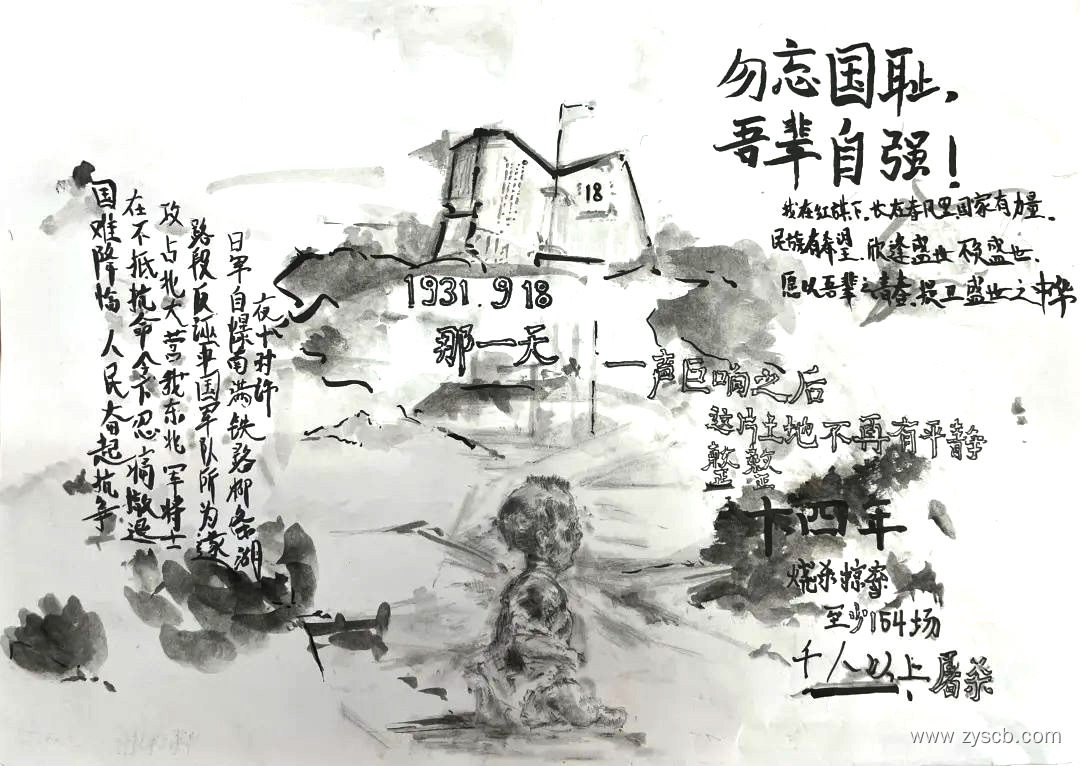 勿忘国耻,
吾辈自强!
我在红旗下.长在春风里国家有力量.
民族有希望.欣逢盛世 不负盛世.
愿以吾辈之青春.捍卫盛世之中华
18
1931.9 18
那一天
夜十时许
日军自爆南满铁路柳条湖
路段反诬中国军队所为遂
攻占北大营我东北军将士
在不抵抗命令下忍痛撤退
国难降临 人民奋起抗争
一声巨响之后
这片土地不再有平静
整整
十四年
烧杀掠夺
至少154场
千人以上屠杀
www.zyscb.com